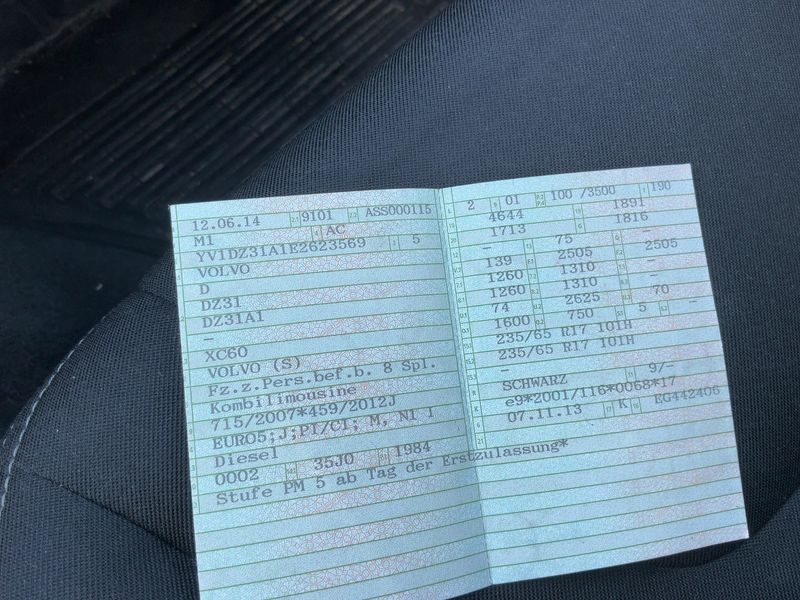 12.06.14 9101 ASS000115
M1 AC
YV1DZ31A1E2623569 5
VOLVO
D
DZ31
DZ31A1
–
XC60
VOLVO (S)
Fz.z.Pers.bef.b. 8 Spl.
Kombilimousine
715/2007*459/2012J
EURO5;J;PI/CI; M, N1 I
Diesel
0002 35J0 1984
Stufe PM 5 ab Tag der Erstzulassung*
2 01 100 /3500 190
4644 1891
1713 1816
– 75 –
139 2505 2505
1260 1310 –
1260 1310 –
74 2625 70
1600 750 5 –
235/65 R17 101H
235/65 R17 101H
–
SCHWARZ 9/–
e9*2001/116*0068*17
07.11.13 K EG442406